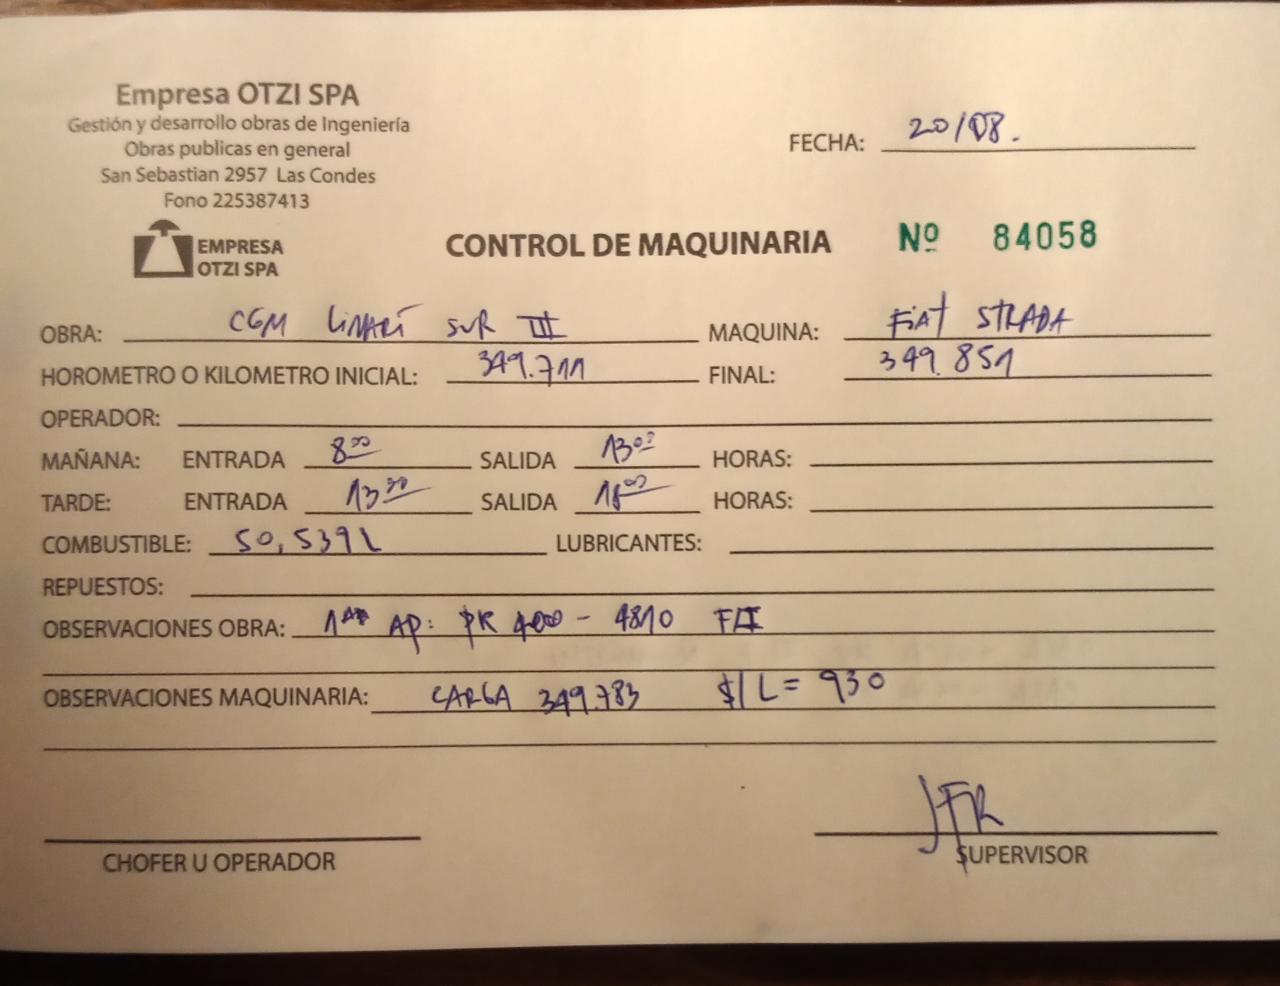 Empresa OTZI SPA
Gestión y desarrollo obras de Ingeniería
Obras publicas en general
San Sebastian 2957 Las Condes
Fono 225387413
FECHA: 20/08.
EMPRESA
OTZI SPA
CONTROL DE MAQUINARIA Nº 84058
OBRA: CGM SUR III MAQUINA: FiAT STRADA
HOROMETRO O KILOMETRO INICIAL: 349.711 FINAL: 349.851
OPERADOR:
MAÑANA: ENTRADA 8⁰⁰ SALIDA 13⁰⁰ HORAS:
TARDE: ENTRADA SALIDA HORAS:
COMBUSTIBLE: 50,539 L LUBRICANTES:
REPUESTOS:
OBSERVACIONES OBRA: AP: - 4810
OBSERVACIONES MAQUINARIA: CARGA 349.783 $/L = 930
JFR
CHOFER U OPERADOR SUPERVISOR